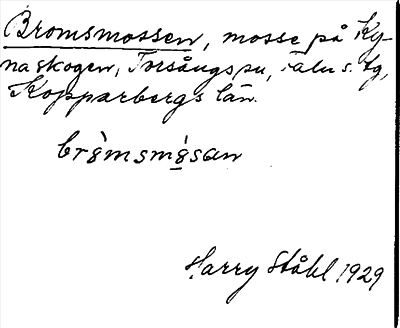 Bromsmossen, mosse på Ky-
naskogen, Torsångs sn, Falu s. tg,
Kopparbergs län.
bròmsmósan
Harry Ståhl 1929